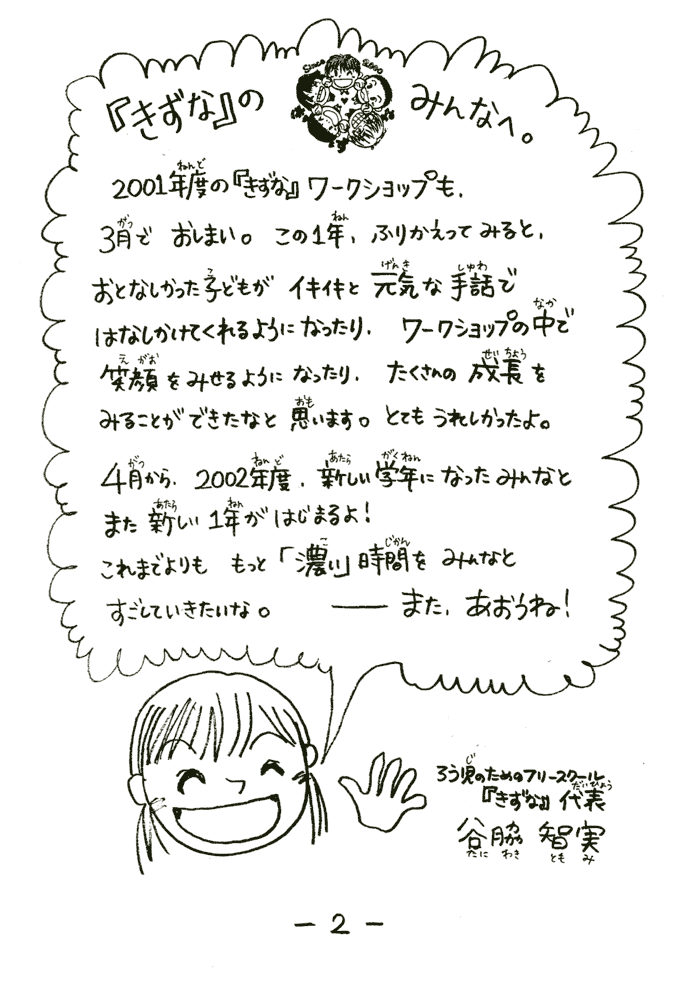 『きずな』の みんなへ。
Since 2000
2001年度の『きずな』ワークショップも、
3月で おしまい。この1年、ふりかえってみると、
おとなしかった子どもが イキイキと 元気な手話で
はなしかけてくれるようになったり、ワークショップの中で
笑顔をみせるようになったり、たくさんの成長を
みることができたなと思います。とてもうれしかったよ。
4月から、2002年度、新しい学年になったみんなと
また新しい1年がはじまるよ!
これまでよりも もっと「濃い」時間を みんなと
すごしていきたいな。 ── また、あおうね!
ろう児のためのフリースクール
『きずな』代表
谷脇 智実
たに わき とも み
- 2 -